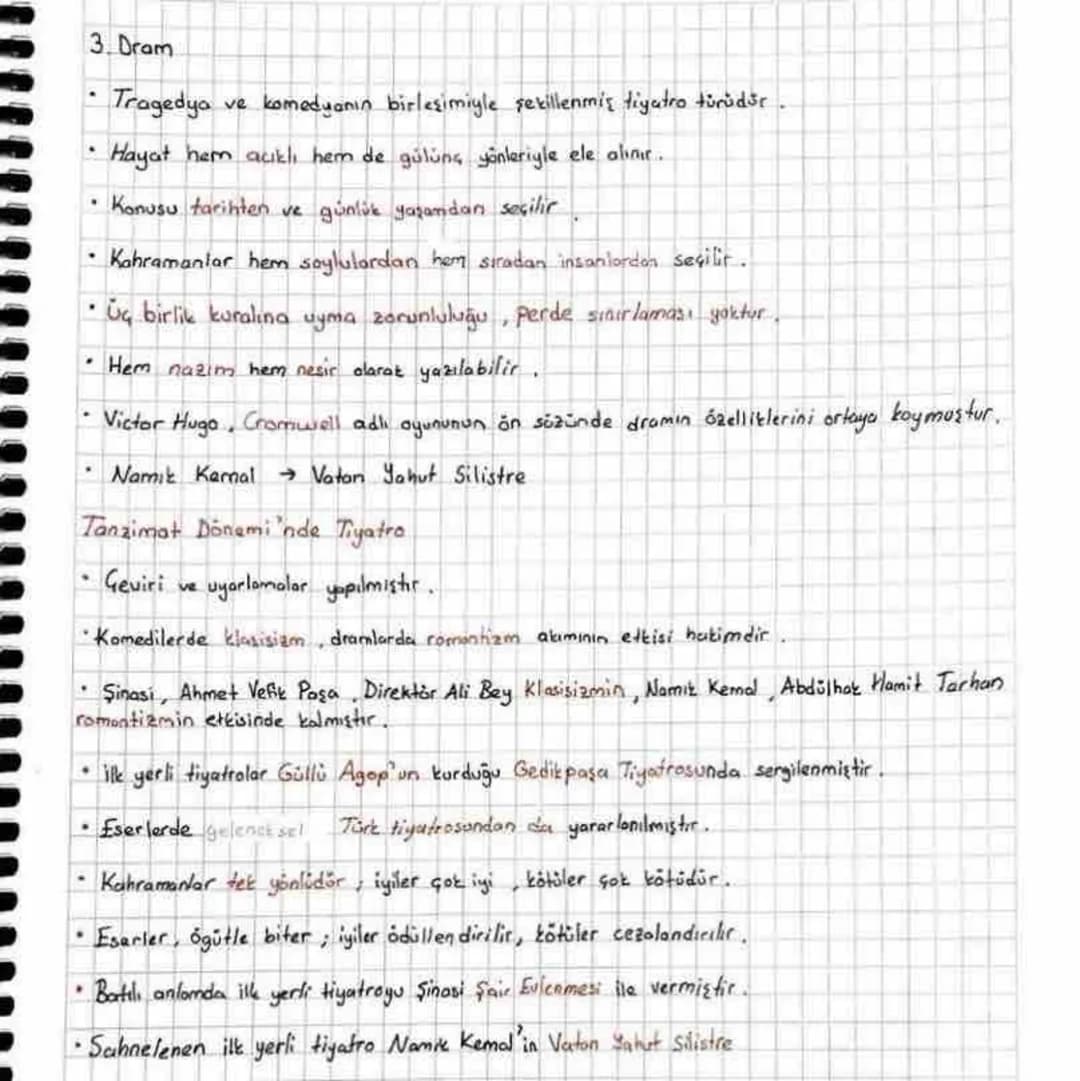 3. Dram
• Tragedya ve komedyanın birleşimiyle şekillenmiş tiyatro türüdür.
• Hayat hem acıklı hem de gülünç yönleriyle ele alınır.
• Konusu tarihten ve günlük yaşamdan seçilir.
• Kahramanlar hem soylulardan hem sıradan insanlardan seçilir.
• Üç birlik kuralına uyma zorunluluğu, perde sınırlaması yoktur.
• Hem nazım hem nesir olarak yazılabilir.
• Victor Hugo, Cromwell adlı oyununun ön sözünde dramın özelliklerini ortaya koymuştur.
• Namık Kemal → Vatan Yahut Silistre
Tanzimat Dönemi'nde Tiyatro
• Çeviri ve uyarlamalar yapılmıştır.
• Komedilerde klasisizm, dramlarda romantizm akımının etkisi hakimdir.
• Şinasi, Ahmet Vefik Paşa, Direktör Ali Bey Klasisizmin, Namık Kemal, Abdülhak Hamit Tarhan
romantizmin etkisinde kalmıştır.
• ilk yerli tiyatrolar Güllü Agop'un kurduğu Gedikpaşa Tiyatrosunda sergilenmiştir.
• Eserlerde geleneksel Türk tiyatrosundan da yararlanılmıştır.
• Kahramanlar tek yönlüdür; iyiler çok iyi, kötüler çok kötüdür.
• Eserler, öğütle biter; iyiler ödüllendirilir, kötüler cezalandırılır.
• Batılı anlamda ilk yerli tiyatroyu Şinasi Şair Evlenmesi ile vermiştir.
• Sahnelenen ilk yerli tiyatro Namık Kemal'in Vatan Yahut Silistre